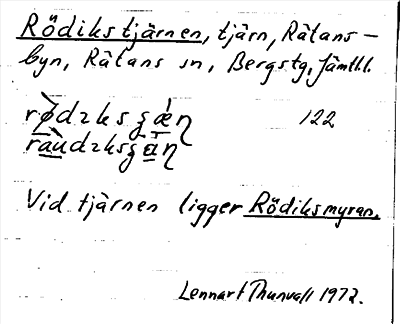 Rödikstjärnen, tjärn, Rätans-
byn, Rätans sn, Bergstg, Jämtl.l.
122
Vid tjärnen ligger Rödiksmyran.
Lennart Thunvall 1972.